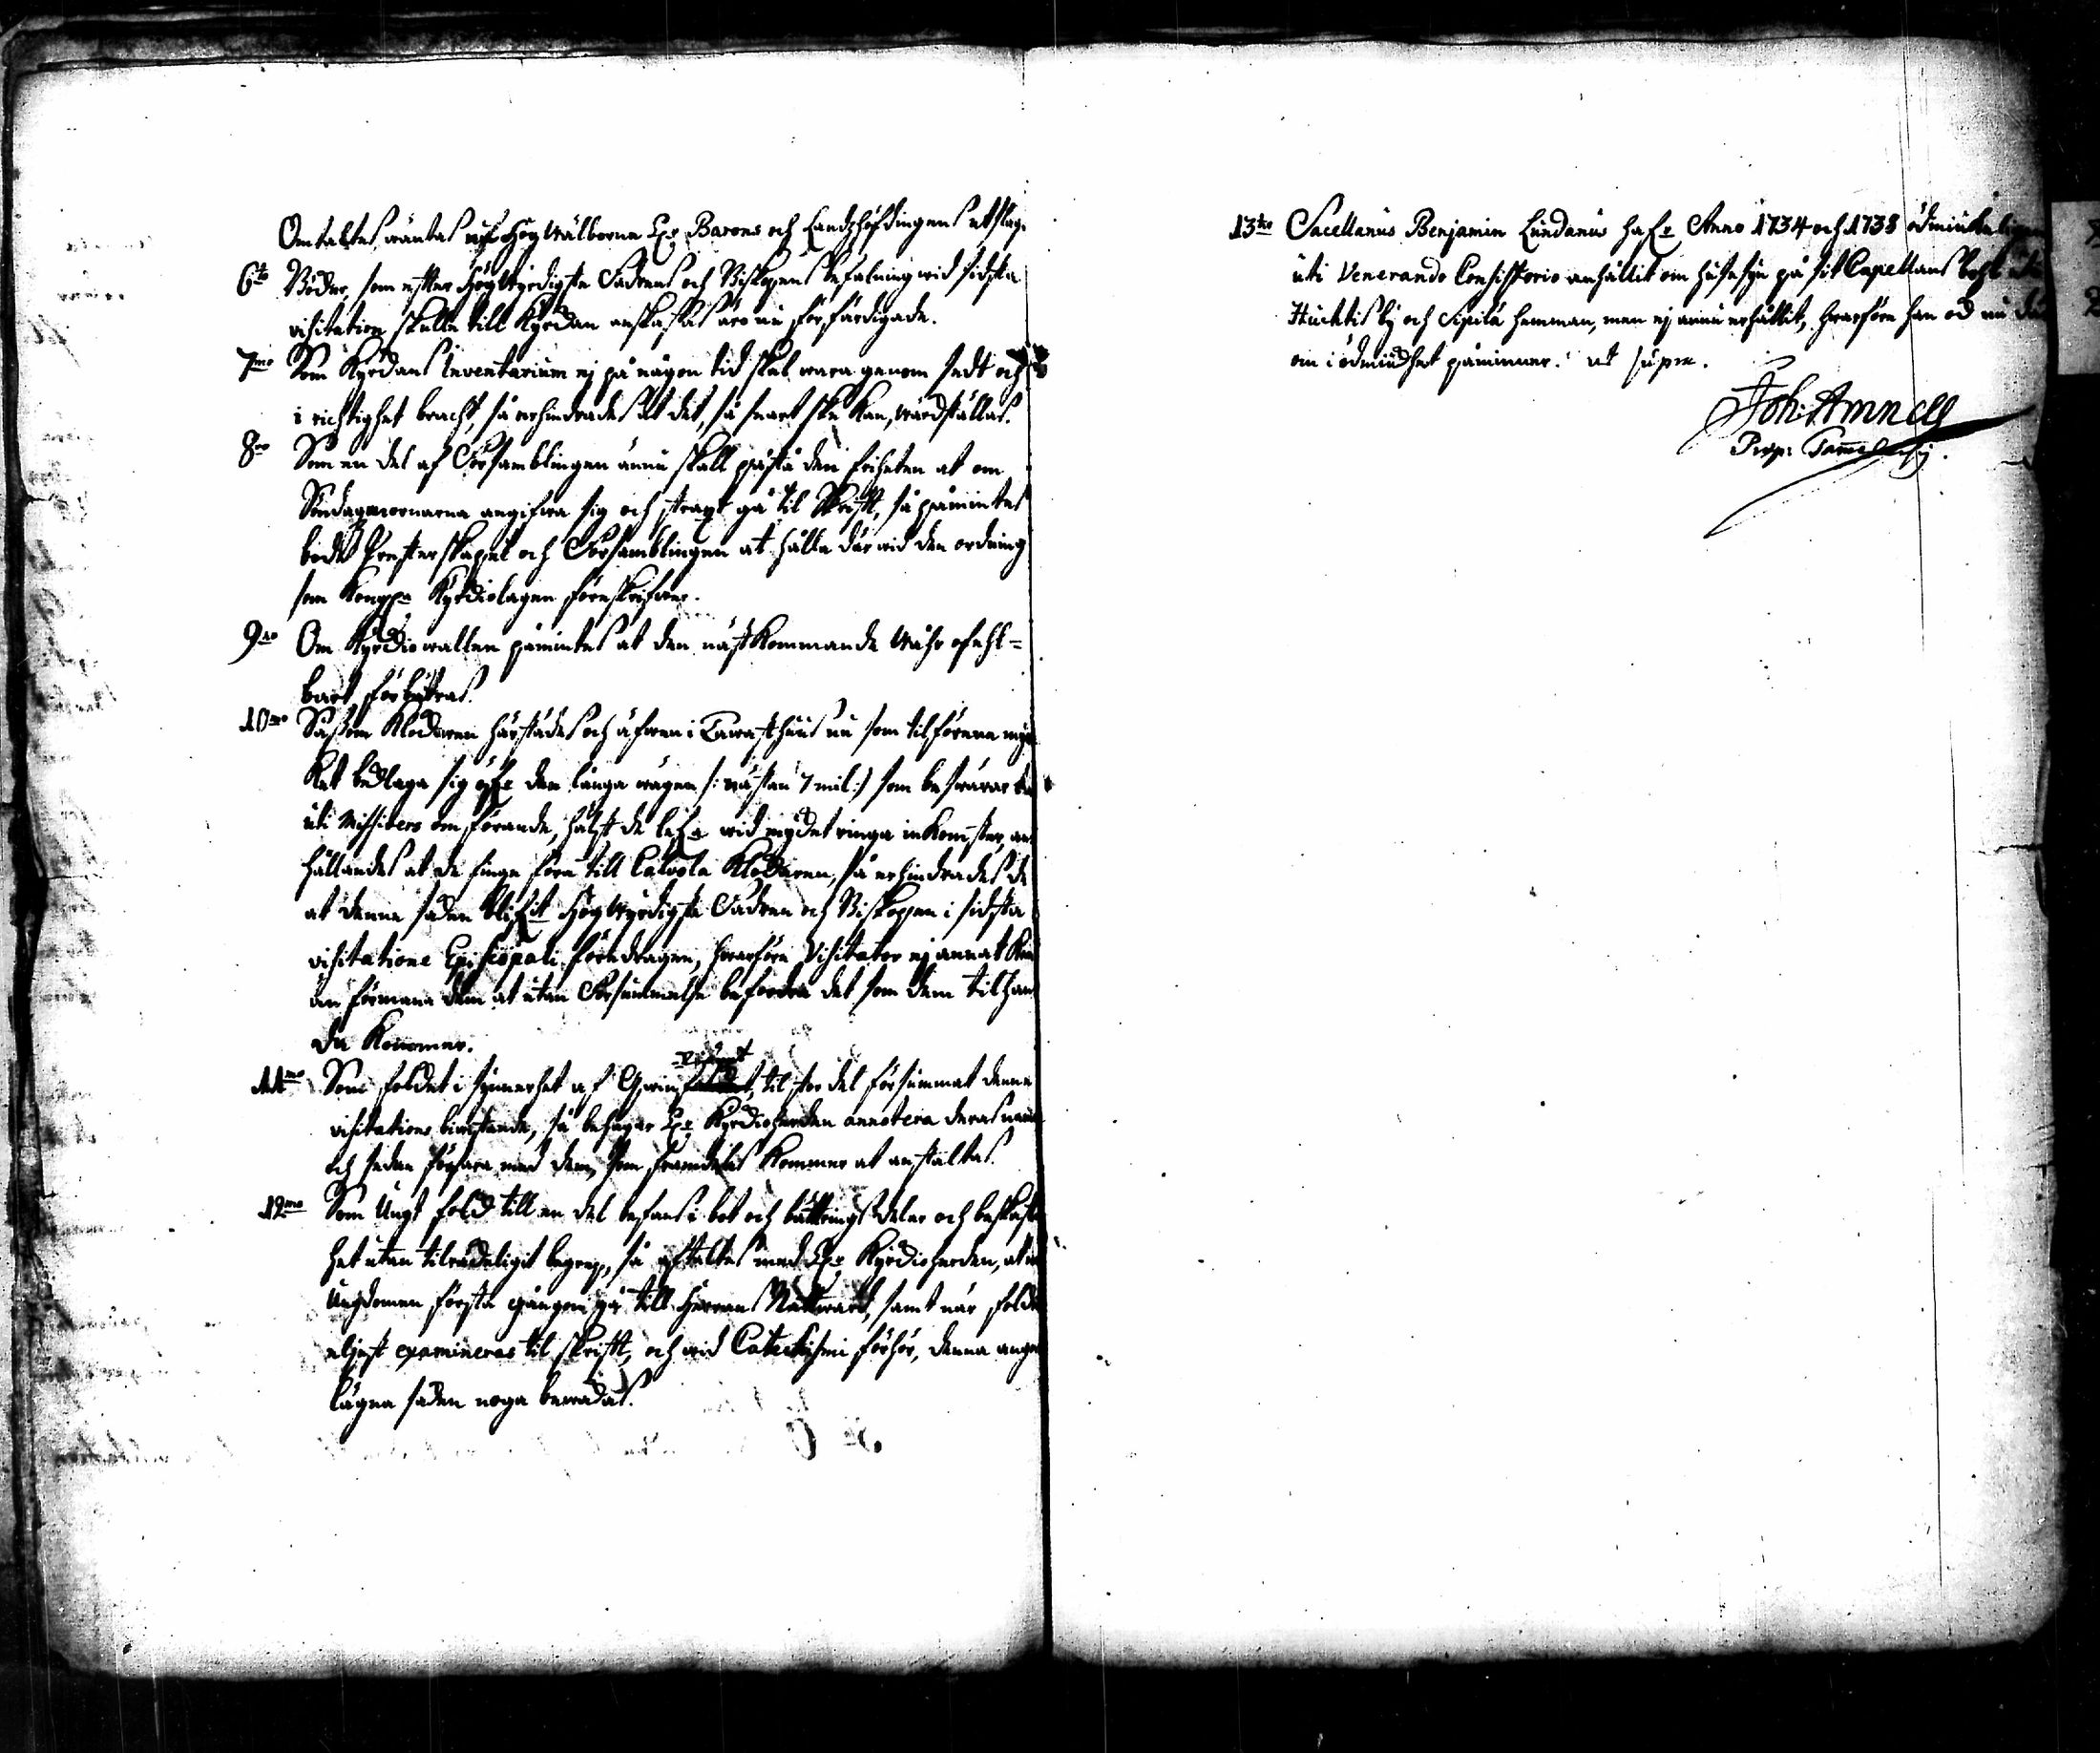 Omtaltes, wäntas af Högwälborne H:r Barons och Landzhöfdingens utslag.
6to Böcker, som efter Högwyrdigste Fadrens och Biskopens befalning wid sidsta
visitation skulle till Kyrckan anskaffas äro nu förfärdigade.
7mo Som Kyrckans Inventarium ej på någon tid skal wara genom sedt och
i richtighet bracht, så erhindrades at det, så snart ske kan, wärckställas.
8vo Som en del af Församblingen ännu skall påstå den friheten at om
Söndagzmornarna angifwa sig och strax gå til Skrift, så påmintes
bode Presterskapet och Församblingen at hålla där wid den ordning
som Kongl. Kyrckiolagen föreskrifwer.
9no Om Kyrckiowallen påmintes at den nästkommande Wåhr ofehl-
bart förbättras.
10mo Såssom Klockaren härstädes och äfwen i Tawasthuus nu som tilförene myc
ket beklaga sig öfr den långa wägen /: nästan 7 mil :/ som beswärar
uti Missivers omförande, hälst de lefa wid mycket ringa inkomster, an-
hållandes at de finge föra till Calvola Klockaren, så erhindrades de
at denna saken blifit Högwyrdigste Fadren och Biskopen i sidsta
visitatione Episcopali föredragen, hwarföre Visitator ej annat kan
än förmana dem at utan Försummelse befordra det som dem tilhan
da kommer.
11mo Som folcket i synnerhet af til stor del försummat denna
visitations biwistande, så behagar H:r Kyrckioherden annotera deras namn
och sedan förfara med dem, som framdeles kommer at anstaltas.
12mo Som Ungt folck till en del befans i bot och bättrings delar och beskaffen
het utan tilräckeligit begrep, så aftaltes med H:r Kyrckioherden, at
Ungdomen första gången gå till Herrans Nattward, samt när folcket
eljest examineras til skrift, och wid Catechismi förhör, denna ange
lägna saken noga bewackas.
13tio Sacellanus Benjamin Lundanus hafr Anno 1734 och 1738 ödmiukeligen
uti Venerando Consistorio anhållit om huusesyn på sit Capellans bohl uti
Huchtis by och Sipilä hemman, men ej ännu erhållit, hwarföre han ock nu där
om i ödmiukhet påminner. ut supra.
Joh: Amnell
Præp: